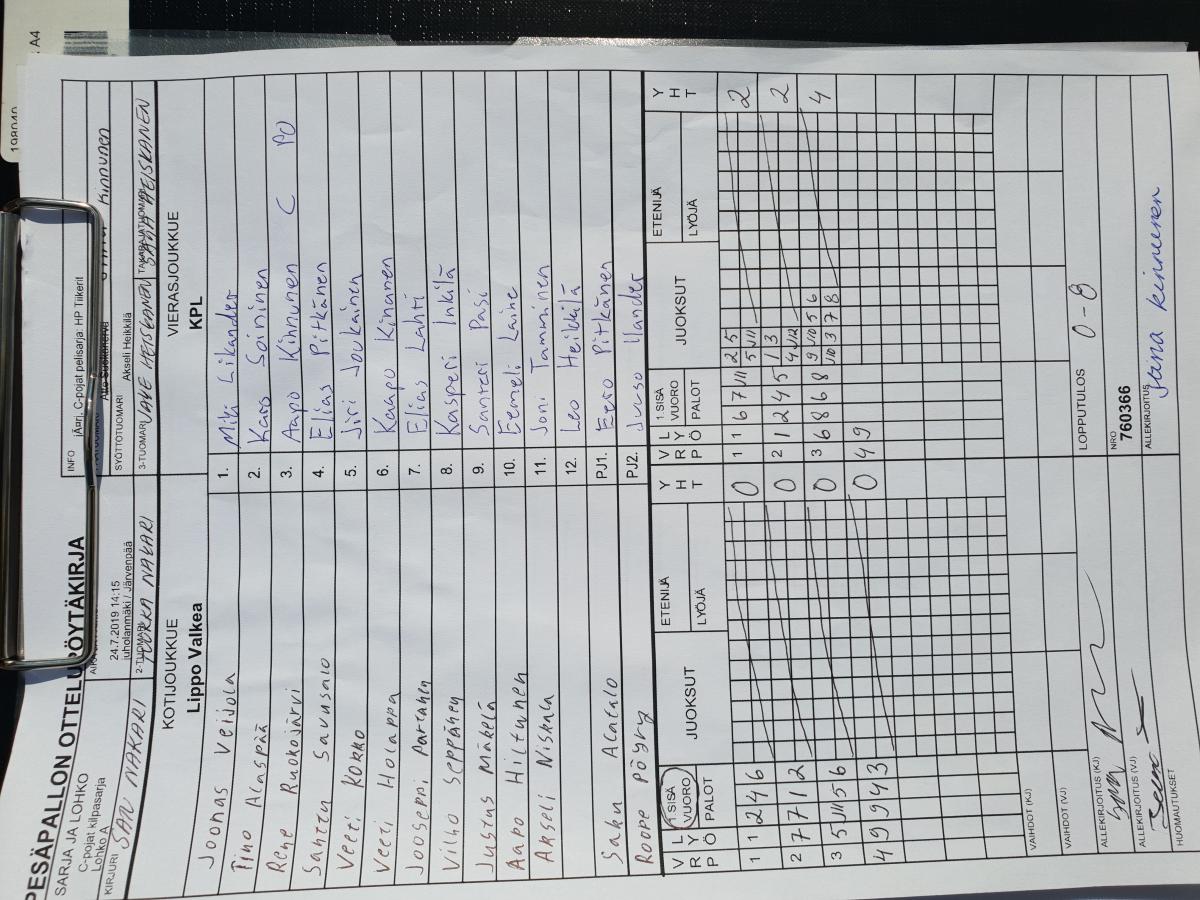 198040
: A4
PESÄPALLON OTTELUPÖYTÄKIRJA
SARJA JA LOHKO
C-pojat kilpasarja
Lohko A
24.7.2019 14:15
juholanmäki / Järvenpää
INFO
C-pojat pelisarja: HP Tiikerit
Kinnunen
SYÖTTÖTUOMARI
Akseli Heikkilä
KIRJURI
SAD NAKARI
2-TUOMARI
TUUKKA NAKARI
3-TUOMARI
KOTIJOUKKUE
Lippo Valkea
VIERASJOUKKUE
KPL
Joonas Veijola 1. Miki Likander
Tino Alaspää 2. Karo Soininen
Rene Ruokojärvi 3. Aapo Kinnunen C PO
Santtu Savusalo 4. Elias Pitkänen
Veeti Kokko 5. Jiri Joukainen
Veeti Holappa 6. Kaapo Kinanen
Jooseppi Partanen 7. Elias Lahti
Vilho Seppänen 8. Kasperi Inkilä
Justus Mäkelä 9. Santeri Pasi
Aapo Hiltunen 10. Eemeli Laine
Akseli Niskala 11. Joni Tamminen
12. Leo Heikkilä
Saku Alatalo PJ1. Eero Pitkänen
Roope Pöyry PJ2. Juuso Ilander
V R P L Y Ö 1.SISÄ VUORO PALOT JUOKSUT ETENIJÄ LYÖJÄ Y H T V R P L Y Ö 1.SISÄ VUORO PALOT JUOKSUT ETENIJÄ LYÖJÄ Y H T
1 1 2 4 6 0 1 1 6 7 VII 2 5 2
5 VII
2 7 7 1 2 0 2 1 2 4 5 1 3 2
4 VII
3 5 VII 5 6 0 3 6 8 6 8 9 VIO 5 6 4
VIO 3 7 8
4 9 9 4 3 0 0 4 9
VAIHDOT (KJ)
VAIHDOT (VJ)
LOPPUTULOS 0-8
ALLEKIRJOITUS (KJ)
NRO
760366
ALLEKIRJOITUS (VJ)
ALLEKIRJOITUS
Jaana Kinnunen
HUOMAUTUKSET